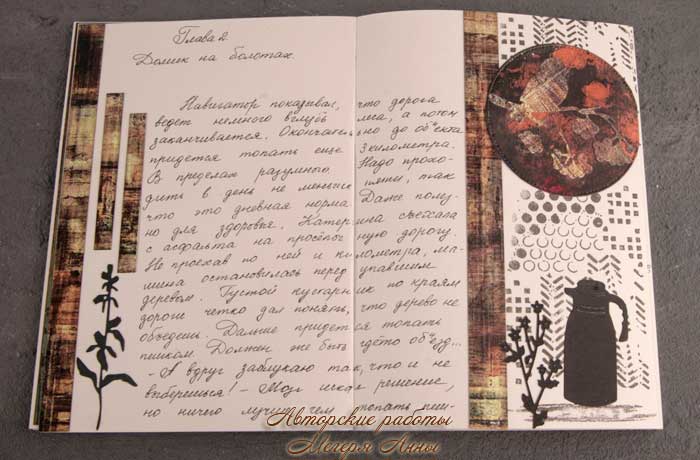 Глава 2.
Домик на болотах.
Навигатор показывал, что дорога
ведет немного вглубь леса, а потом
заканчивается. Окончательно до объекта
придется топать еще 3 километра.
В пределах разумного. Надо прохо-
дить в день не меньше пяти, так
что это дневная норма. Даже полез-
но для здоровья. Катерина съехала
с асфальта на проселочную дорогу.
Не проехав по ней и километра, ма-
шина остановилась перед упавшим
деревом. Густой кустарник по краям
дороги четко дал понять, что дерево не
объедешь. Дальше придется топать
пешком. Должен же быть где-то объезд...
- А вдруг заблужаю так, что и не
выберешься! - Мозг искал решение,
но ничего лучше чем топать пеш-
Авторские работы
Мегеря Анны